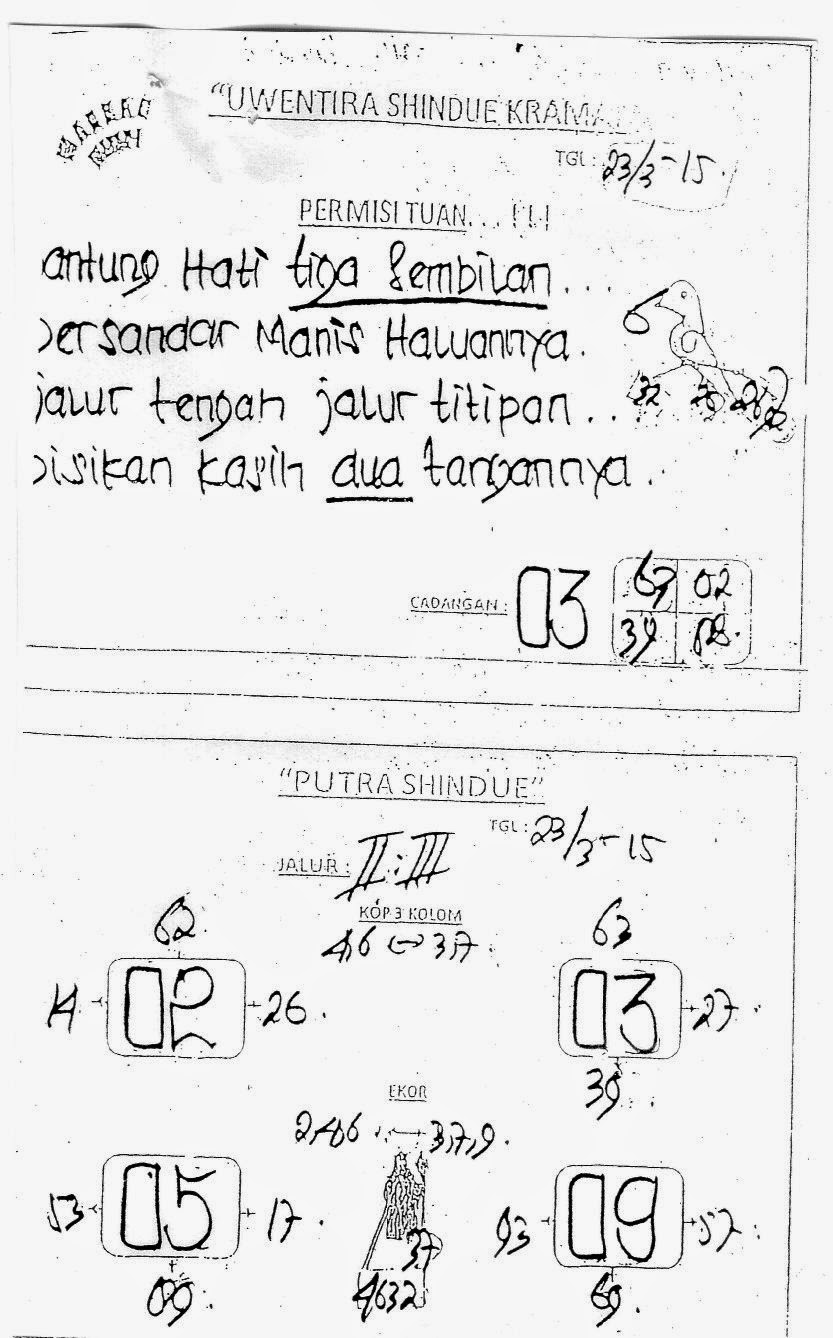 "UWENTIRA SHINDUE KRAMA
TGL: 23/3-15.
PERMISI TUAN... !!!
antung Hati tiga Sembilan...
bersandar Manis Haluannya.
jalur tengah jalur titipan...
bisikan kasih dua tangannya.
32 26
CADANGAN: 03
63 02
39
"PUTRA SHINDUE"
TGL: 23/3-15
JALUR: II:III
KOP 3 KOLOM
4,6 ↔ 3,7
62
14 02 26
63
03 27
39
EKOR
2,4,6 ↔ 3,7,9.
53 05 17
09
37
4632
93 09 57
69